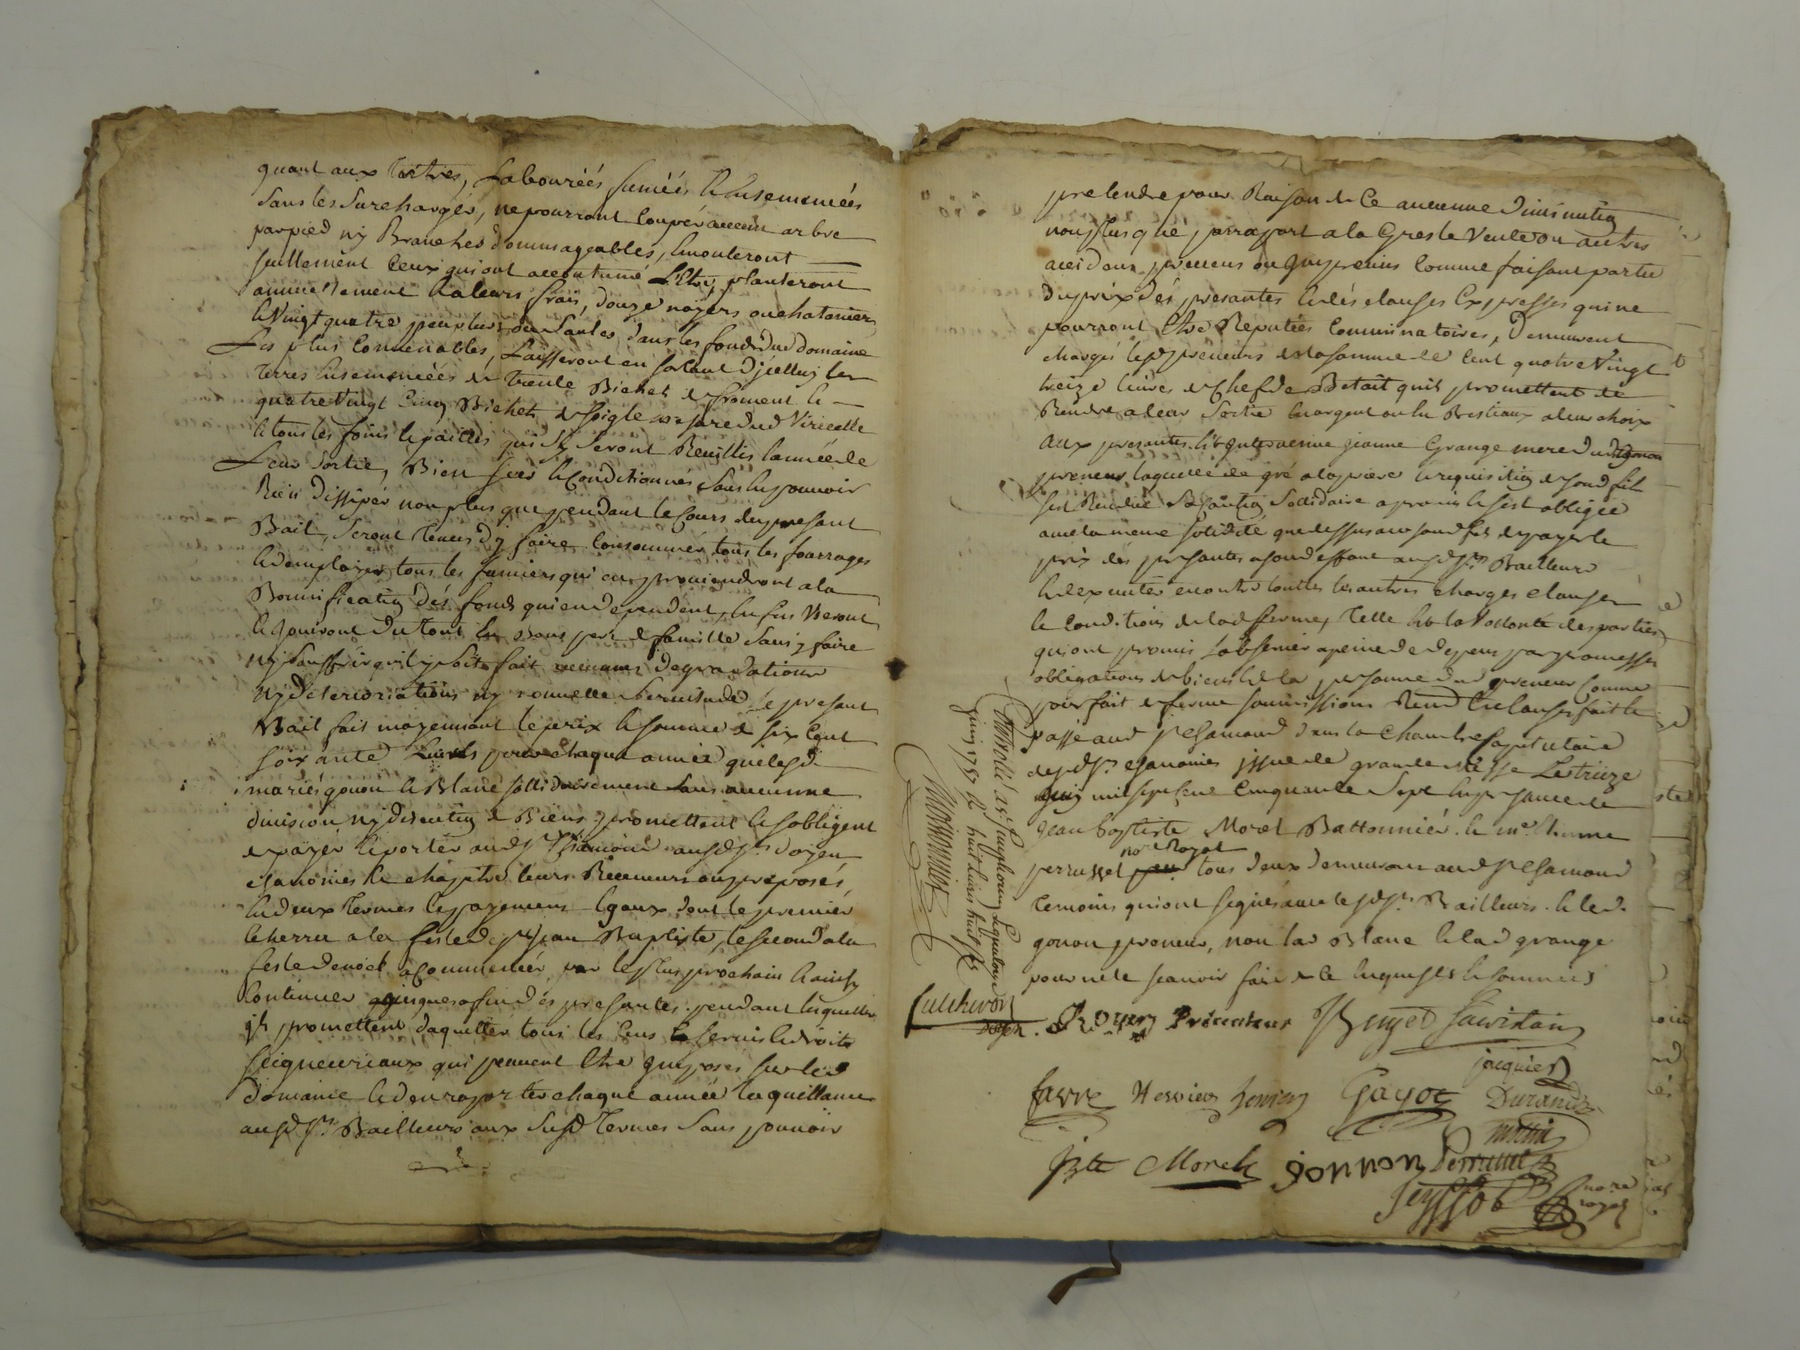 quant aux terres, Labourées fumées & Ensemencées
Sans les Surcharger, ne pourront Couper aucun arbre
par pied ny Branches dommageables, Emonteront
seullement Ceux qui ont accoutumé L'Etre, planteront
annuellement & a leurs frais, douze noyers ou chatoniers
& Vingt quatre peupliers ou Saules dans les fonds dud domaine
Les plus Convenables, Laisseront en sortant d'jcelluy les
terres Ensemencées de trente Bichets de froment &
quatre Vingt Cinq Bichets de soigle mesure dud Viricelle
& tous les foins & pailles qui sy seront Recuillis l'année de
Leur Sortie, Bien secs & Conditionnés Sans en pouvoir
Rien dissiper non plus que pendant le Cours du present
Bail, Seront tenus d'y faire Consommer tous les fourrages
& d'employer tous les fumiers qui en proviendront a la
Bonnification des fonds qui en dependent, En fin Useront
& Jouiront du tout En Bons pere de famille Sans y faire
ny souffrir qu'il y soit fait aucunes degradations
ny deterioriations ny nouvelle Servitude, Le present
Bail fait moyennant le prix & somme de six Cent
soixante Livres pour chaque année que lesd
mariés gonon & Blanc sollidairement Sans aucunne
division ny discution de Biens promettent & s'obligent
de payer & porter aud St Chamond auxd Srs doyen
chanoines & chapitre leurs Receveurs ou preposés,
En deux termes & payemens Egaux dont le premier
Echerra a la feste de St Jean Baptiste, le second a la
feste de noel a Commencer par les plus prochain & ainsy
Continuer jusques a fin des presantes; pendant lesquelles
ils promettent d'aquitter tous les Cens & servis & droits
seigneuriaux qui peuvent Etre Imposes sur led
domaine & d'en raporter chaque année la quittance
auxd Srs Bailleurs aux Susd termes Sans pouvoir
pretendre pour Raison de Ce aucunne diminution
non plus que par raport a la Gresle Vente ou autres
accidans preveus ou Impreveus Comme faisant partie
du prix des presantes & des clauses Expresses qui ne
pourront Etre Reputées Comminatoires, demeurent
chargés lesd preneurs de la somme de Cent quatre Vingt
treize Livre de Chef de Betail qu'ils promettent de
Rendre a leur Sortie En argent ou En Bestiaux a leur choix
Aux presantes Est Intervenue jeanne Grange mere dud gonon
preneur laquelle de gré a la priere & requisition de sond fils
sest Rendue Sa Caution Solidaire a promis & sest obligée
avec la meme solidité que dessus avec sond fils de payer le
prix des presantes a sond deffaut auxd Srs Bailleurs
& d'executer en outre touttes les autres charges clauses
& Conditions de lad ferme, telle Est la Vollonté des parties
qui ont promis L'observer a peine de depens par promesses
obligations de biens & de la personne dud preneur Comme
pour fait de ferme soumissions Rend & clauses fait &
passé aud St Chamond dans la Chambre Capitulaire
desd Srs chanoines jssue de grande Messe Le treize
juin mil sept Cent Cinquante Sept En presance de
Jean baptiste Morel Battonnier & me Etienne
perrusset nore Royal tous deux demeurans aud St Chamond
temoins qui ont signés avec lesd Srs Bailleurs & led
gonon preneur, non lad Blanc & lad grange
pour ne le scavoir faire de ce Enquises & sommées
Royer Précenteur
jacquier
favre Gayot Durand
Jbte Morel gonnon Perrusset
Teyssot nore royal
juin 1757 R huit Livres huit s